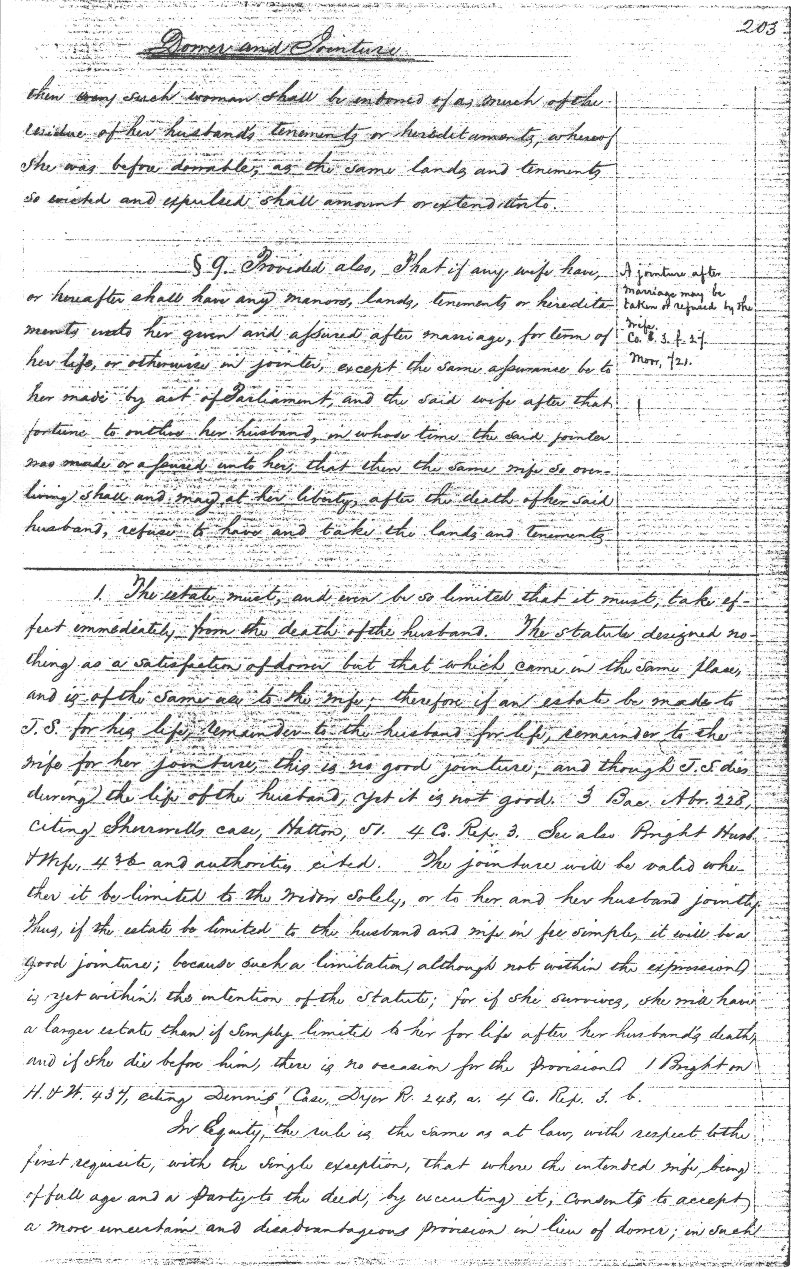 203
Dower and Jointure
then every such woman shall be endowed of as much of the
residue of her husband's tenements or hereditaments, whereof
she was before dowable, as the same lands and tenements
so evicted and expulsed shall amount or extend unto.
§ 9. Provided also, That if any wife have,
or hereafter shall have any manors, lands, tenements or heredita-
ments unto her given and assured after marriage, for term of
her life, or otherwise in jointer, except the same assurance be to
her made by act of Parliament, and the said wife after that
fortune to outlive her husband, in whose time the said jointer
was made or assured unto her, that then the same wife so over-
living shall and may, at her liberty, after the death of her said
husband, refuse to have and take the lands and tenements
A jointure after
marriage may be
taken or refused by the
Wife.
Co. 3. f. 27.
Moor, 721.
1. The estate must, and even be so limited that it must, take ef-
fect immediately from the death of the husband. The statute designed no-
thing as a satisfaction of dower but that which came in the same place,
and is of the same use to the wife; therefore if an estate be made to
J.S. for his life, remainder to the husband for life, remainder to the
wife for her jointure, this is no good jointure; and though J.S. dies
during the life of the husband, yet it is not good. 3 Bac. Abr. 228,
citing Sherwell's case, Hutton, 51. 4 Co. Rep. 3. See also Bright Husb.
& Wife, 436 and authorities cited. The jointure will be valid whe-
ther it be limited to the widow solely, or to her and her husband jointly.
Thus, if the estate be limited to the husband and wife in fee simple, it will be a
good jointure; because such a limitation, although not within the expression
is yet within the intention of the Statute; for if she survives, she will have
a larger estate than if simply limited to her for life after her husband's death,
and if she die before him, there is no occasion for the provision. 1 Bright on
H. & W. 437, citing Dennis' Case, Dyer R. 248, a. 4 Co. Rep. 3. b.
In Equity, the rule is the same as at law, with respect to the
first requisite, with the single exception, that where the intended wife, being
of full age and a party to the deed, by executing it, consents to accept
a more uncertain and disadvantageous provision in lieu of dower; in such